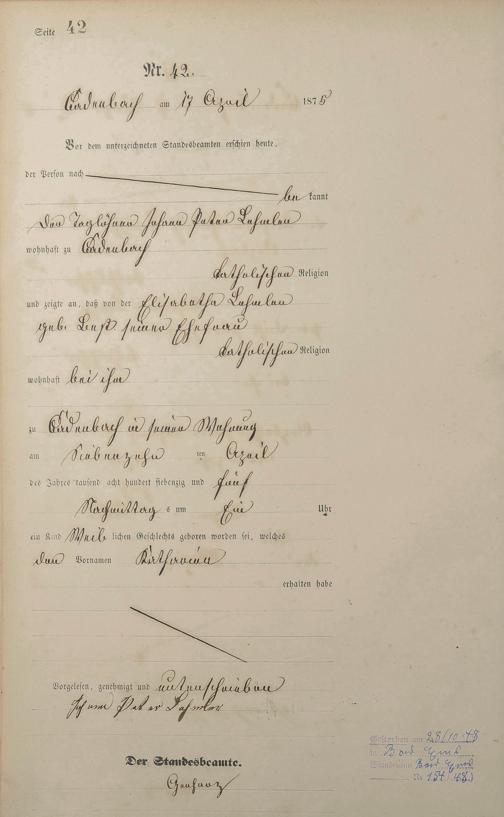 Seite 42
Nr. 42.
Cadenbach am 17 April 1875
Vor dem unterzeichneten Standesbeamten erschien heute,
der Person nach
bekannt
der Taglöhner Johann Peter Lehmler
wohnhaft zu Cadenbach
katholischen Religion
und zeigte an, daß von der Elisabetha Lehmler
geb. Best seiner Ehefrau
katholischen Religion
wohnhaft bei ihm
zu Cadenbach in seiner Wohnung
am Siebenzehn ten April
des Jahres tausend acht hundert siebenzig und fünf
Nachmittag s um Ein Uhr
ein Kind Weiblichen Geschlechts geboren worden sei, welches
den Vornamen Katharina
erhalten habe
Vorgelesen, genehmigt und unterschrieben
Johann Peter Lehmler
Der Standesbeamte.
Gestorben am 28/10 48
in Bad Ems
Standesamt Bad Ems
Nr.